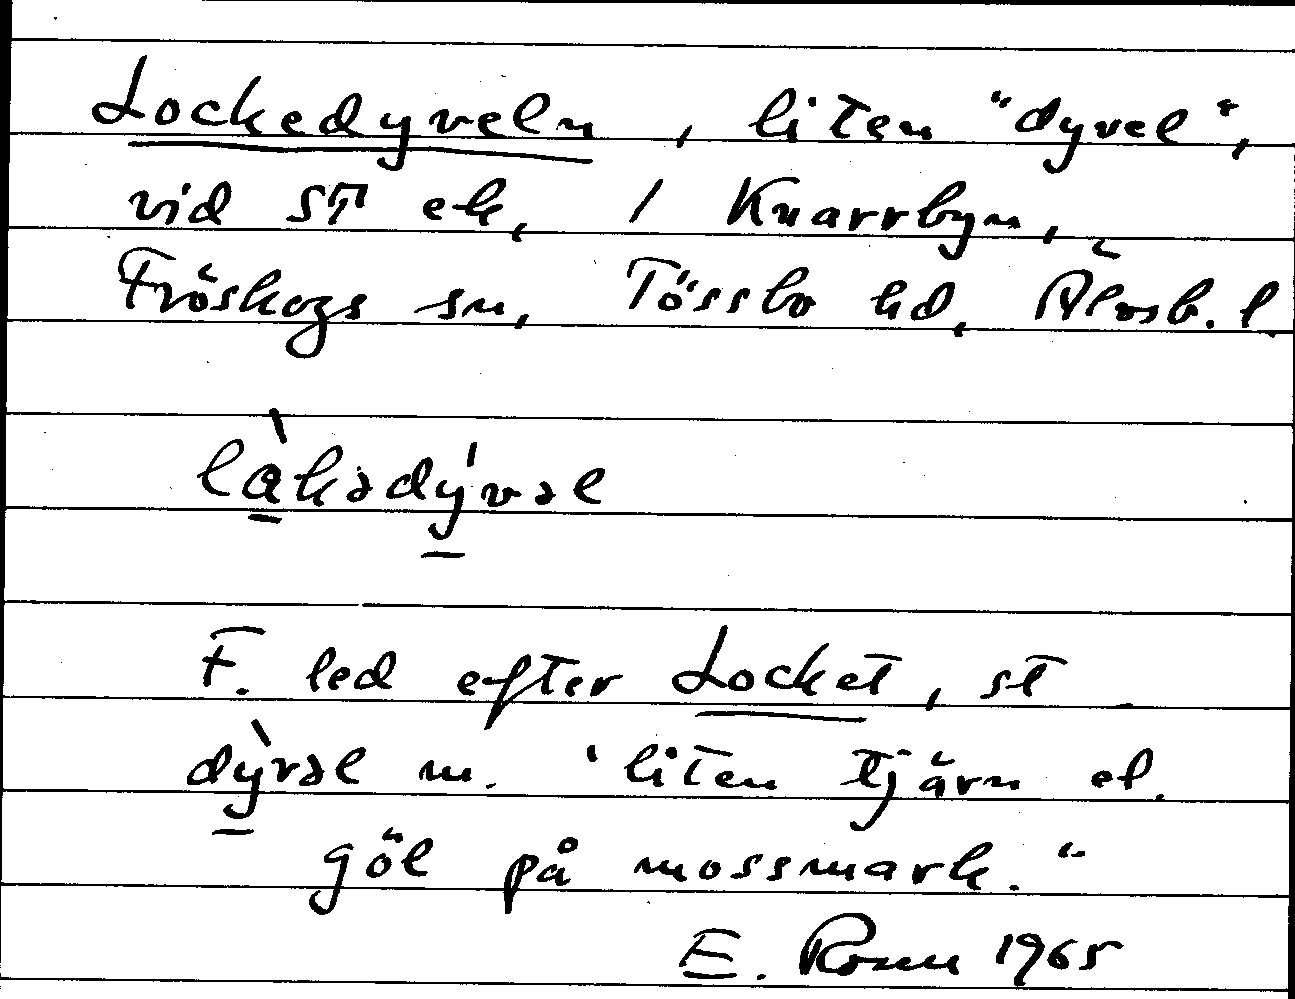 Lockedyveln, liten "dyvel",
vid ST ek, 1 Knarrbyn,
Fröskogs sn, Tössbo hd, Älvsb. l.
làkədývəl
F. led efter Locket, st
dỳvəl m. 'liten tjärn el.
göl på mossmark."
E. 1965